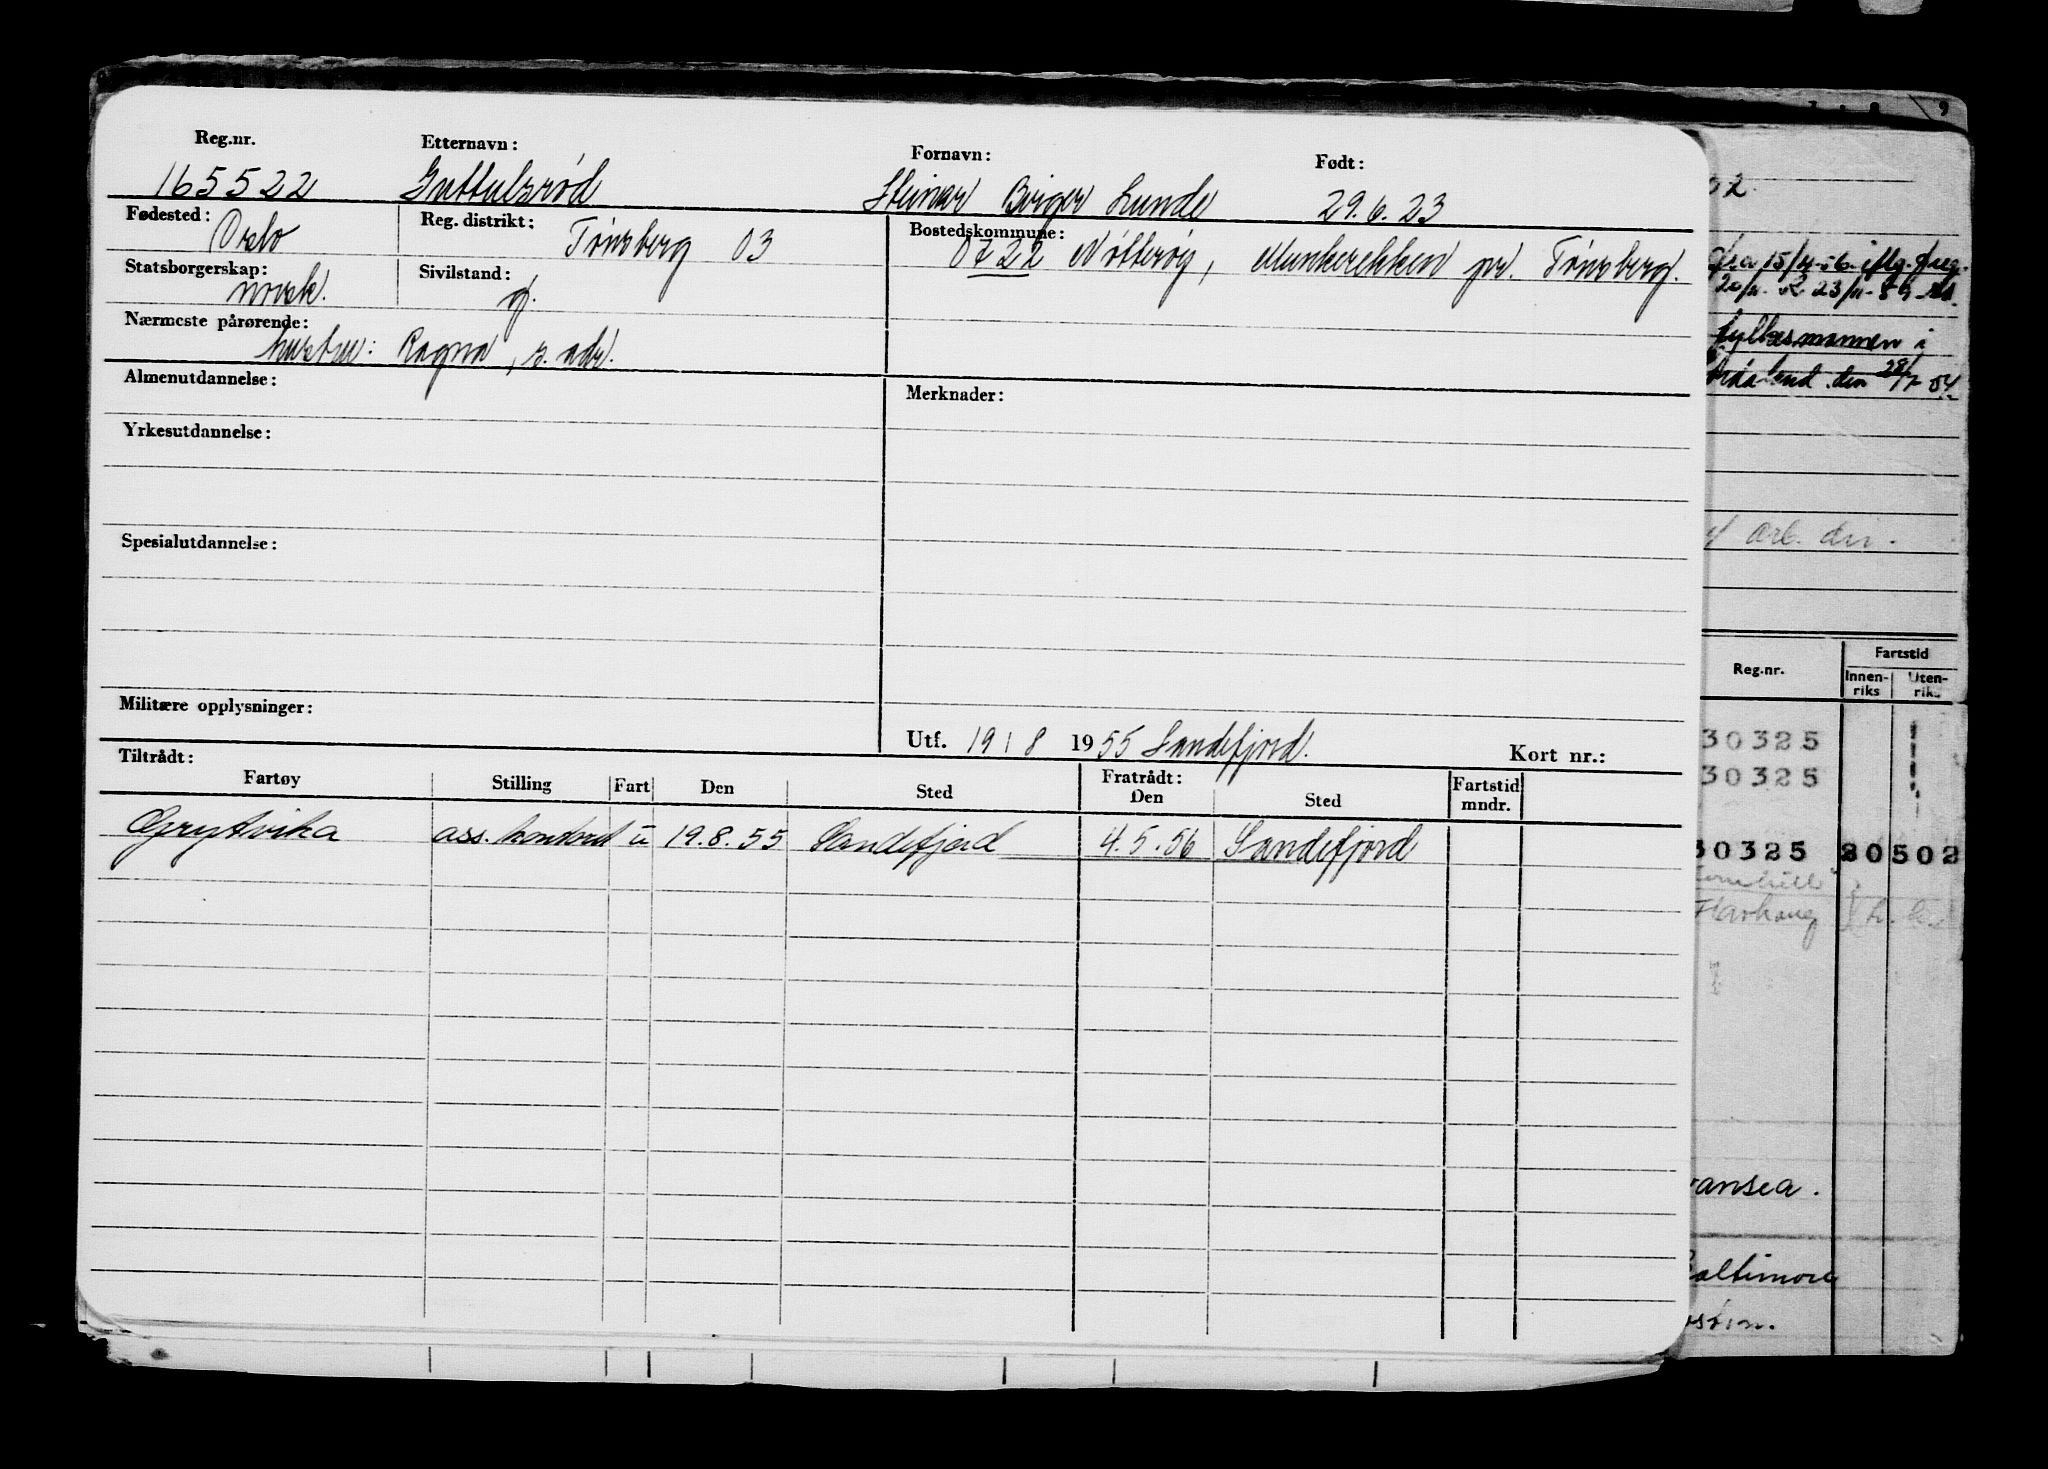 Reg.nr. Etternavn: Fornavn: Født:
165522 Guttulsrød Steinar Birger Lunde 29.6.23
Fødested: Oslo Reg. distrikt: Tønsberg 03 Bostedskommune: 0722 Nøtterøy, Munkerekken pr. Tønsberg.
Statsborgerskap: norsk. Sivilstand: g.
Nærmeste pårørende:
hustru: Ragna, s. adr.
Almenutdannelse: Merknader:
Yrkesutdannelse:
Spesialutdannelse:
Militære opplysninger:
Utf. 19/8 1955 Sandefjord. Kort nr.:
Tiltrådt: Fratrådt:
Fartøy Stilling Fart Den Sted Den Sted Fartstid mndr.
Grytvika ass. u 19.8.55 Sandefjord 4.5.56 Sandefjord
fra 15/
fylkesmannen i
den 28/7 54
arb. dir.
Reg.nr. Fartstid
Innenriks Utenriks
30325
30325
30325 80502
vansea.
Baltimore